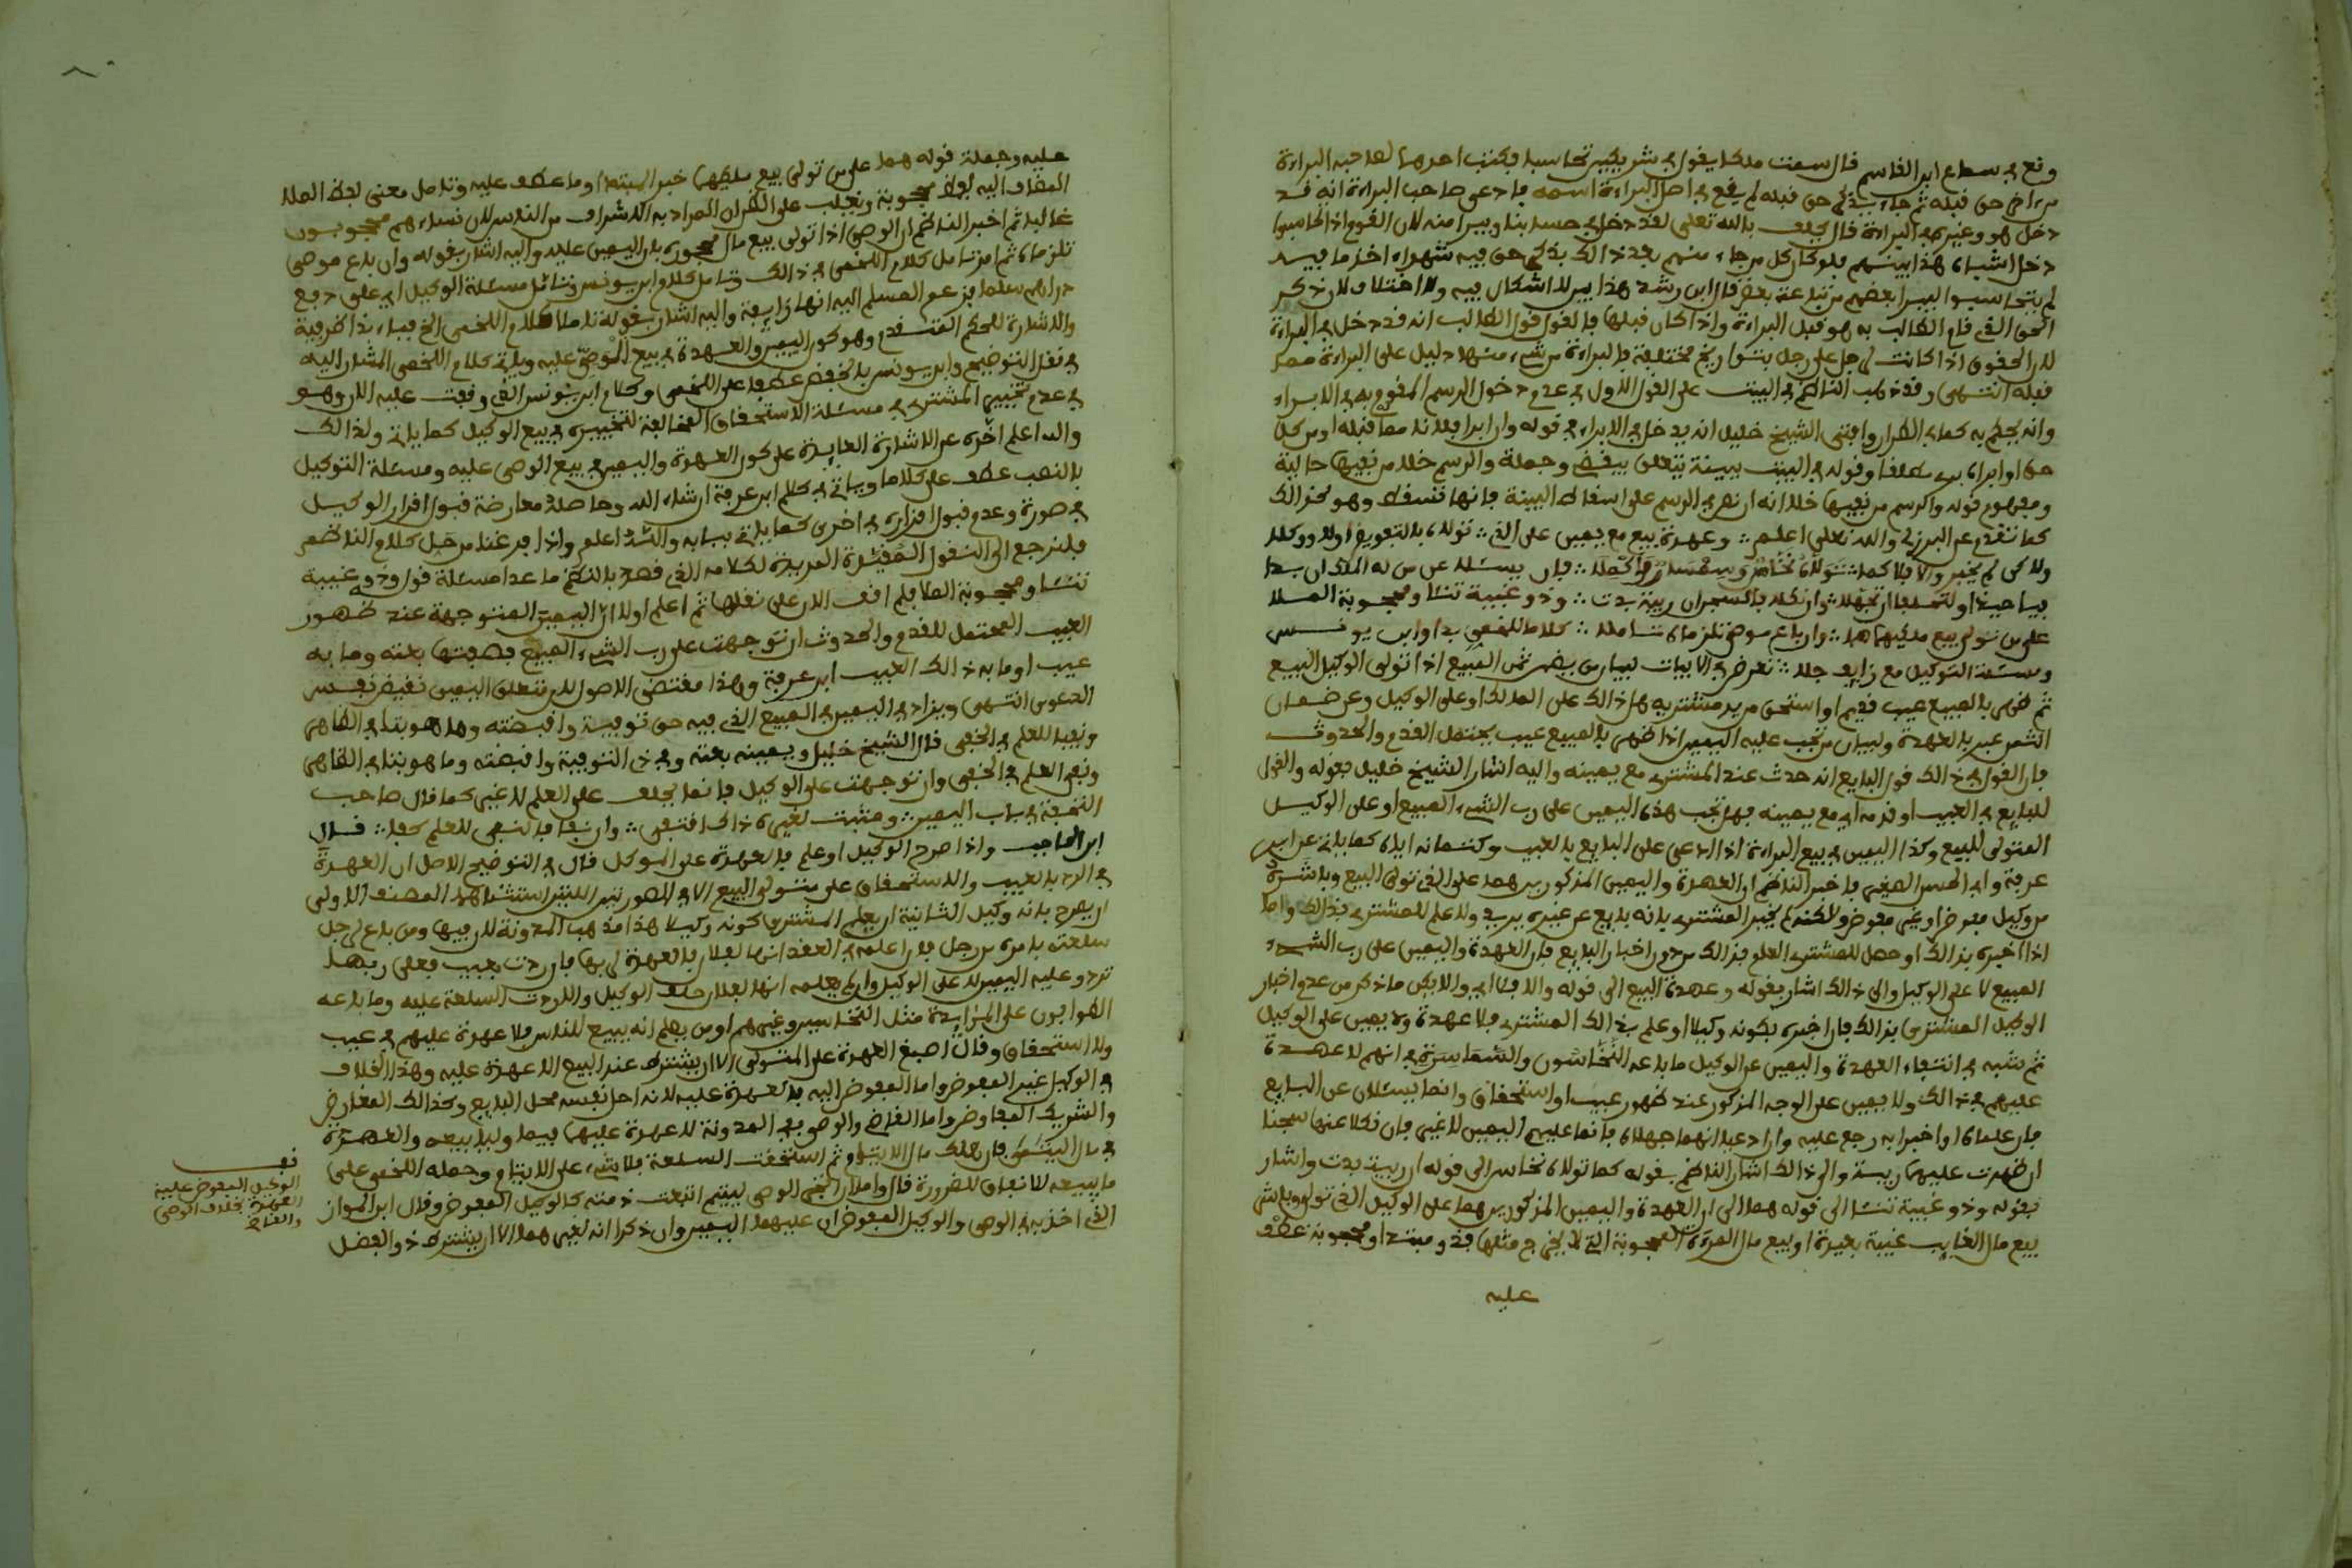 وقع في سماع ابن القاسم قال سمعت ملكا يقول في شريكين تحاسبا فكتب احدهما لصاحبه البراءة
من اخر حق قبله ثم جاء بذكر حق قبله لم يقع في اصل البراءة اسمه فادعى صاحب البراءة انه قد
دخل هو وغيره في البراءة قال يحلف بالله تعلى لقد دخل في حسابنا وبرا منه لان القوم اذا تحاسبوا
دخل اشياء هذا بينهم فلو كان كل من جاء منهم بعد ذالك بذكر حق فيه شهداء اخذ ما فيه
لم يتحاسبوا ليبرا بعضهم من تباعة بعض قال ابن رشد هذا بين لا اشكال فيه ولا اختلاف لان ذكر
الحق الذي قام الطالب به هو قبل البراءة واذا كان قبلها فالقول قول الطالب انه قد دخل في البراءة
لان الحقوق اذا كانت لرجل على رجل بتواريخ مختلفة فالبراءة من شيء منها دليل على البراءة مما
قبله انتهى وقد ذهب الناظم في البيت على القول الاول في عدم دخول الرسم المقوم به في الابراء
وانه يحكم به كما في الطرار وافتى الشيخ خليل انه يدخل في الابراء في قوله وان ابرا فلانا مما قبله او من كل
حق او ابراه برئ مطلقا وقوله في البيت ببينة يتعلق بيقضى وجملة والرسم خلا من نفيها حالية
ومفهوم قوله والرسم من نفيها خلا انه ان نص في الرسم على اسقاط البينة فانها تسقط وهو كذالك
كما تقدم عن البرزلي والله تعلى اعلم ∴ وعهدة بيع مع يمين على الذي ∴ تولاه بالتفويض اولا ووكلا
ولاكن لم يخبر والا فلا كما ∴ تولاه نخاس وسمسار فاكملا ∴ فان يسئلا عن من له الملك ان بدا
فيا حبذا او لتحلفا ان تجهلا ∴ وان نكلا فالسجن ان ريبة بدت ∴ وذو غيبة تنئا ومحجوبة الملا
على من تولى بيع ملكيهما هما ∴ وان باع موصى تلزماه تاملا ∴ كلاما للخمي بدا وابن يونس
ومسئلة التوكيل مع زايف جلا ∴ تعرض في الابيات لبيان من يضمن ثمن المبيع اذا تولى الوكيل البيع
ثم ظهر بالمبيع عيب قديم او استحق من يد مشتريه هل ذالك على المالك او على الوكيل وعن ضمان
الثمن عبر بالعهدة ولبيان من تجب عليه اليمين اذا ظهر بالمبيع عيب يحتمل القدم والحدوث
فان القول في ذالك قول البايع انه حدث عند المشتري مع يمينه واليه اشار الشيخ خليل بقوله والقول
للبايع في العيب او قدمه اي مع يمينه فهل تجب هذه اليمين على رب الشيء المبيع او على الوكيل
المتولى للبيع وكذا اليمين في بيع البراءة اذا ادعى على البايع بالعيب وكتمانه اياه كما ياتي عن ابن
عرفة وابي الحسن الصغير فاخبر الناظم ان العهدة واليمين المذكورين هما على الذي تولى البيع وباشره
من وكيل مفوض او غير مفوض ولاكنه لم يخبر المشتري بانه بايع عن غيره ولا علم للمشتري بذالك واما
اذا اخبره بذالك او حصل للمشتري العلم بذالك من دون اخبار البايع فان العهدة واليمين على رب الشيء
المبيع لا على الوكيل والى ذالك اشار بقوله وعهدة البيع الى قوله والا فلا اي والا يكن ما ذكر من عدم اخبار
الوكيل المشتري بذالك فان اخبره بكونه وكيلا او علم بذالك المشتري فلا عهدة ولا يمين على الوكيل
ثم شبه في انتفاء العهدة واليمين عن الوكيل ما باعه النخاسون والسماسرة في انهم لا عهدة
عليهم في ذالك ولا يمين على الوجه المذكور عند ظهور عيب او استحقاق وانما يسئلان عن البايع
فان علماه او اخبرا به رجع عليه وان ادعيا انهما جهلاه فانما عليهم اليمين لا غير فان نكلا عنها سجنا
ان ظهرت عليهما ريبة والى ذالك اشار الناظم بقوله كما تولاه نخاس الى قوله ان ريبة بدت واشار
بقوله وذو غيبة تنئا الى قوله هما الى ان العهدة واليمين المذكورين هما على الوكيل الذي تولى وباشر
بيع مال الغايب غيبة بعيدة او بيع مال المرءة المحجوبة التي لا يخرج مثلها فذو مبتدا ومحجوبة عطف
عليه
عليه وجملة قوله هما على من تولى بيع ملكيهما خبر المبتدا وما عطف عليه وتامل معنى لفظ الملا
المضاف اليه لفظ محجوبة ويغلب على الظن ان المراد به الاشراف من الناس لان نساءهم محجوبون
غالبا ثم اخبر الناظم ان الوصي اذا تولى بيع مال محجوره فان اليمين عليه واليه اشار بقوله وان باع موصى
تلزماه ثم امر بتامل كلام اللخمي في ذالك وتامل كلام ابن يونس وتامل مسئلة الوكيل اي على دفع
دراهم سلما فزعم المسلم اليه انها زايفة واليه اشار بقوله تاملا كلام اللخمي الخ فبداء بذا ظرفية
والاشارة للحكم المتقدم وهو كون اليمين والعهدة في بيع الموصى عليه وياتي كلام اللخمي المشار اليه
في نقل التوضيح وابن يونس بالخفض عطفا على اللخمي وكلام ابن يونس الذي وقفت عليه الان وهو
في عدم تخيير المشتري في مسئلة الاستحقاق المخالفة لتخييره في بيع الوكيل كما ياتي ولذالك
والله اعلم اخره عن الاشارة العايدة على كون العهدة واليمين في بيع الوصي عليه ومسئلة التوكيل
بالنصب عطف على كلاما وياتي في كلام ابن عرفة ان شاء الله وحاصله معارضة قبول اقرار الوكيل
في صورة وعدم قبول اقراره في اخرى كما ياتي بيانه والله اعلم واذا فرغنا من حل كلام الناظم
فلنرجع الى النقول المفسرة المزيدة لكلامه الذي قصد بالنظم ما عدا مسئلة قول وذو غيبة
تنئا ومحجوبة الملا فلم اقف الان على نقلها ثم اعلم اولا ان اليمين المتوجهة عند ظهور
العيب المحتمل للقدم والحدوث ان توجهت على رب الشيء المبيع فصفتها بعته وما به
عيب او ما به ذالك العيب ابن عرفة وهذا مقتضى الاصول لان متعلق اليمين نقيض نفس
الدعوى انتهى ويزاد في اليمين في المبيع الذي فيه حق توفية واقبضته وما هو بتا في الظاهر
ونفيا للعلم في الخفي قال الشيخ خليل ويمينه بعته وفي ذي التوفية واقبضته وما هو بتا في الظاهر
ونفي العلم في الخفي وان توجهت على الوكيل فانما يحلف على العلم لا غير كما قال صاحب
التحفة في باب اليمين ∴ ومثبت لغيره ذاك اقتفى ∴ وان نفى فالنفي للعلم كفى ∴ قال
ابن الحاجب واذا صرح الوكيل او علم فالعهدة على الموكل قال في التوضيح الاصل ان العهدة
في الرد بالعيب والاستحقاق على متولى البيع الا في الصورتين اللتين استثناهما المصنف الاولى
ان يصرح بانه وكيل الثانية ان يعلم المشتري كونه وكيلا هذا مذهب المدونة لان فيها ومن باع لرجل
سلعته بامره من رجل فان اعلمه في العقد انها لفلان فالعهدة لربها فان ردت بعيب فعلى ربها
ترد وعليه اليمين لا على الوكيل وان لم يعلمه انها لفلان حلف الوكيل والا ردت السلعة عليه وما باعه
الطوافون على المزايدة مثل النخاسين وغيرهم او من يعلم انه يبيع للناس فلا عهدة عليهم في عيب
ولا استحقاق وقال اصبغ العهدة على المتولى الا ان يشترط عند البيع الا عهدة عليه وهذا الخلاف
في الوكيل غير المفوض واما المفوض اليه فالعهدة عليه لانه احل نفسه محل البايع وكذالك المقارض
والشريك المفاوض واما القاضي والوصي ففي المدونة لا عهدة عليهما فيما ولي بيعه والعهدة
في مال اليتامى فان هلك مال الايتام ثم استحقت السلعة فلا شيء على الايتام وحمله اللخمي على
ما يبيعه للانفاق للضرورة قال واما ان اتجر الوصي لليتيم اتبعت ذمته كالوكيل المفوض وقال ابن المواز
الذي اخذ به في الوصي والوكيل المفوض ان عليهما اليمين وان ذكرا انه لغيرهما الا ان يشترط ذو الفضل
قف
الوكيل المفوض عليه
العهدة بخلاف الوصي
والقاضي